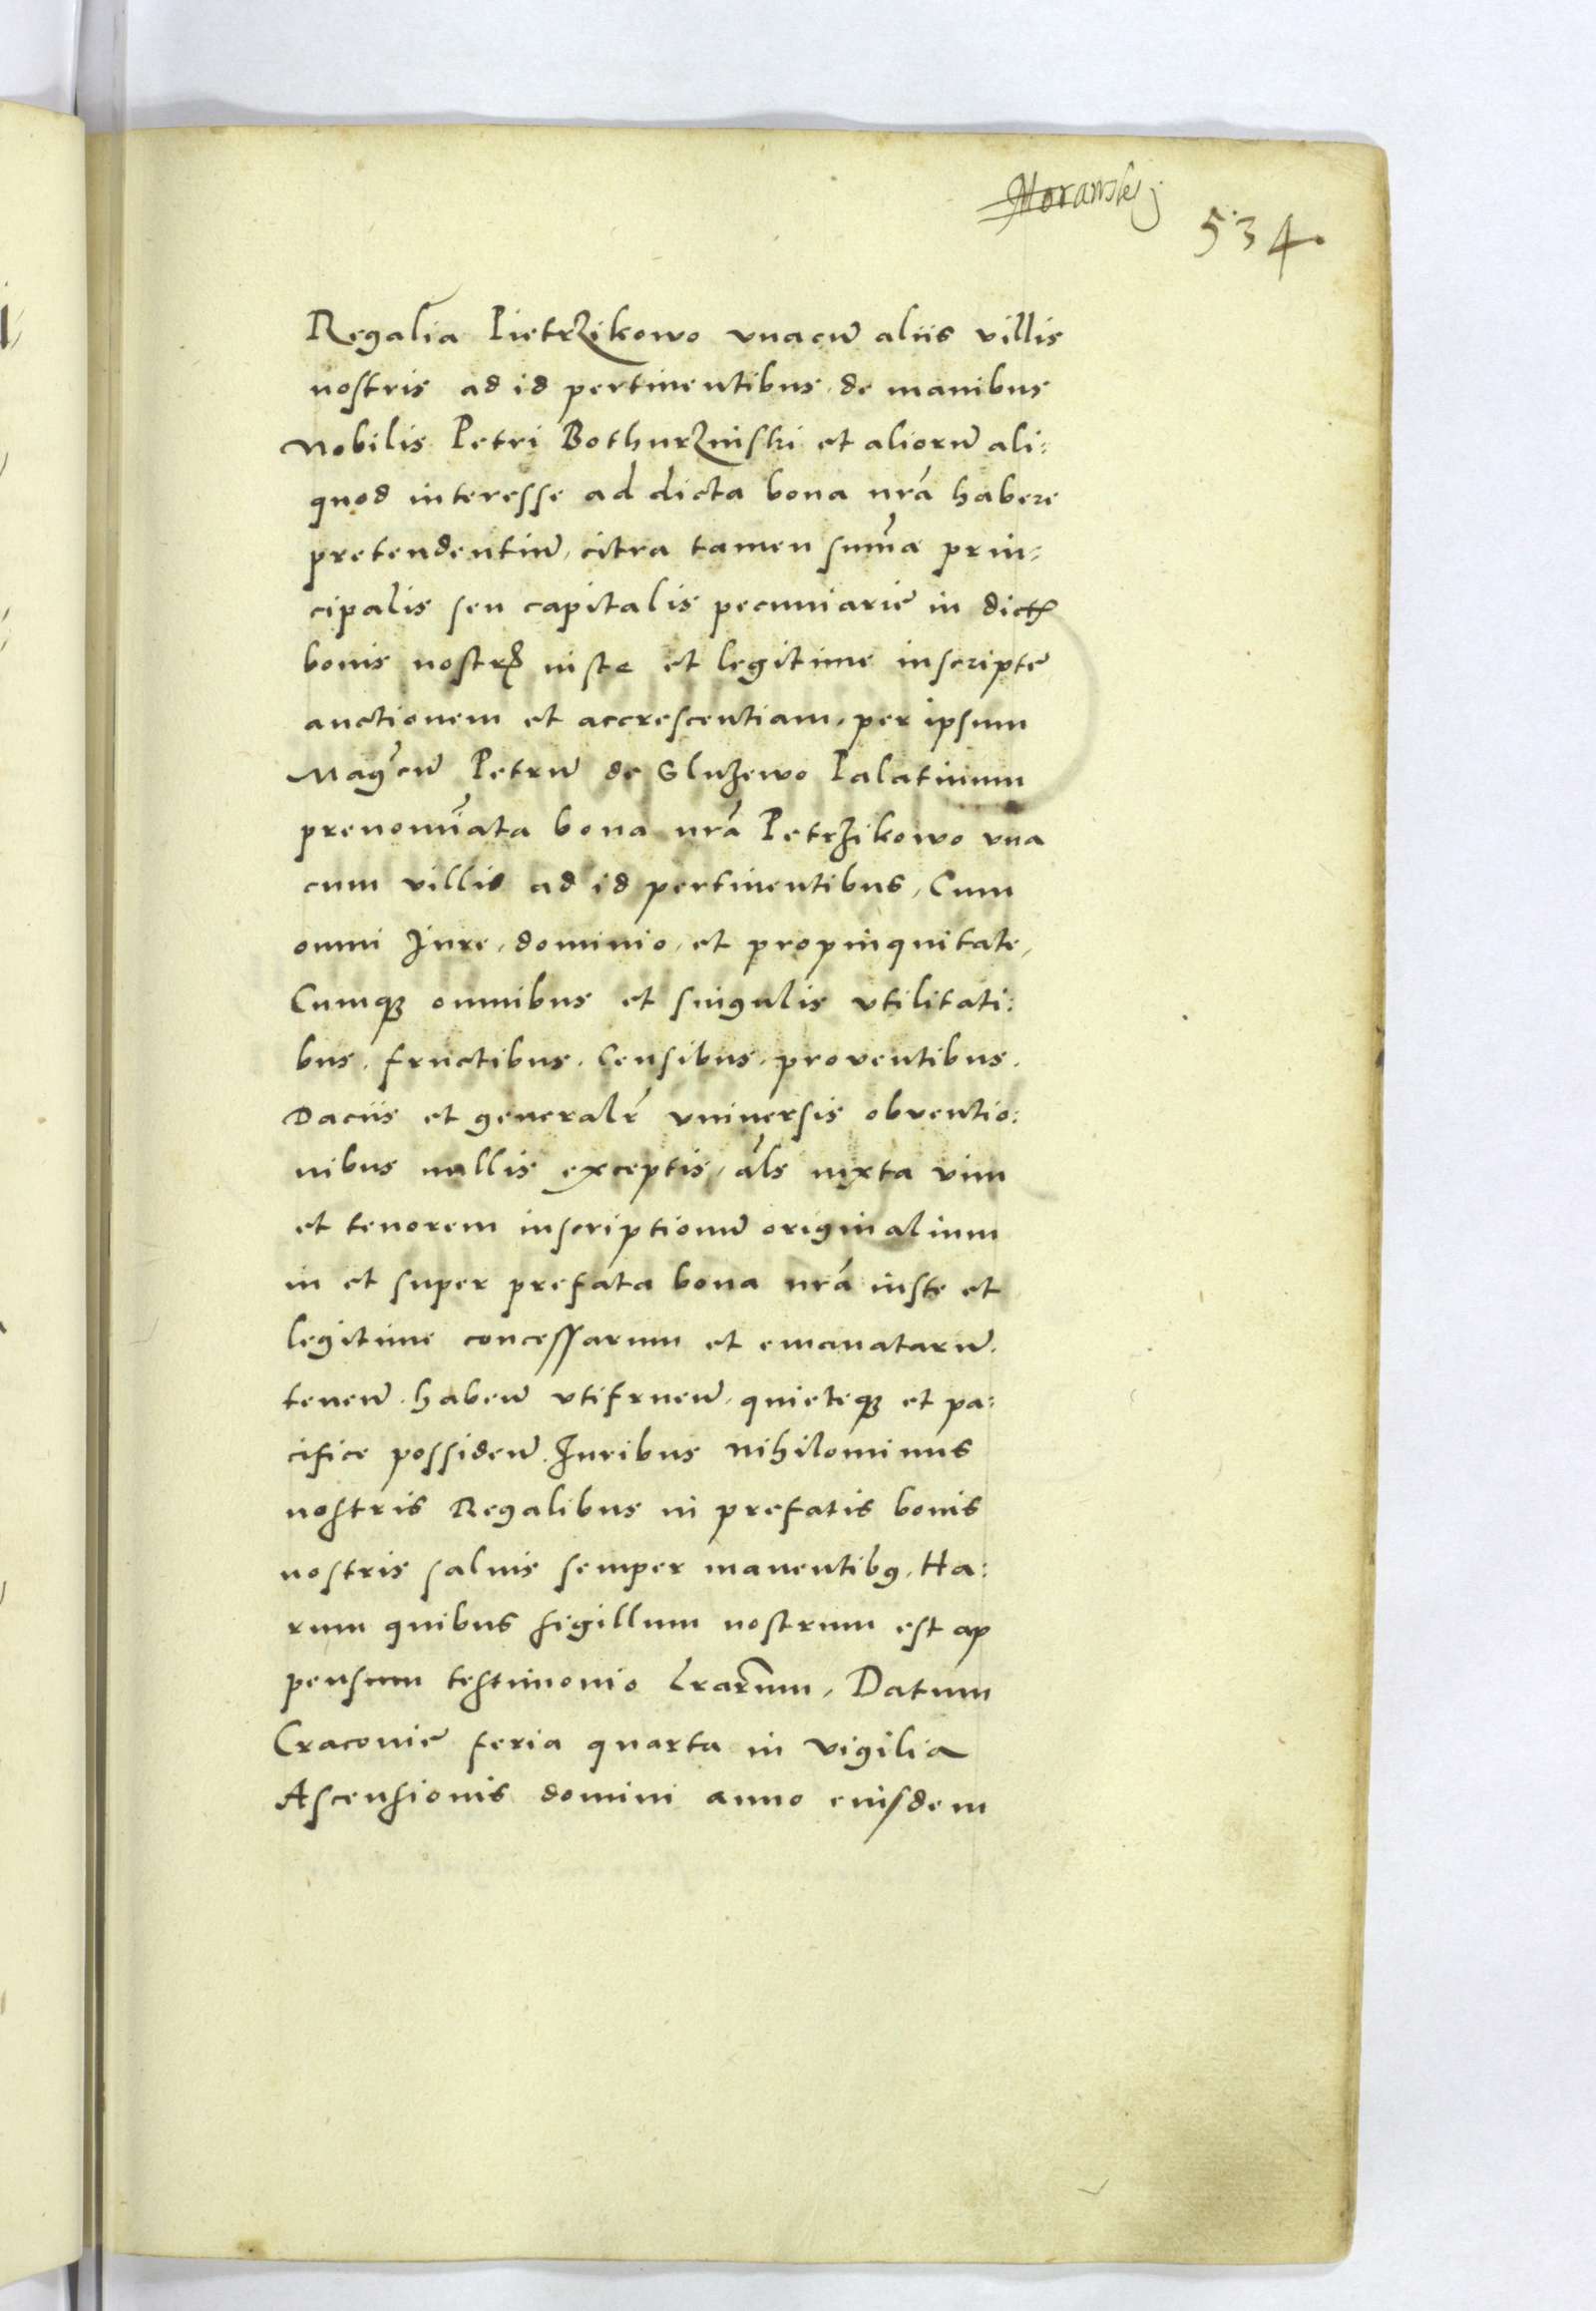 Moranskj
534.
Regalia Pietrzikowo vnacũ aliis villis
nostris ad id pertinentibus. de manibus
Nobilis Petri Bothurzniski et aliorũ ali:
quod interesse ad dicta bona nrã habere
pretendentiũ, citra tamen sum̃e prin:
cipalis seu capitalis pecuniarie in dictꝭ
bonis nostrꝭ iuste et legitime inscripte
auctionem et accrescentiam, per ipsum
Magcũ Petrũ de Sluzewo Palatinum
prenomĩata bona nrã Petrzikowo vna
cum villis ad id pertinentibus, Cum
omni Jure, dominio, et propinquitate,
Cumqꝫ omnibus et singulis vtilitati:
bus. fructibus. Censibus. proventibus.
Daciis et generalr̃ vniuersis obventio:
nibus nullis exceptis, als̃ iuxta vim
et tenorem inscriptionũ originalium
in et super prefata bona nrã iuste et
legitime concessarum et emanatarũ.
tenen̄. haben̄ vtifruen̄. quieteqꝫ et pa:
cifice possiden̄. Juribus nihilominus
nostris Regalibus in prefatis bonis
nostris saluis semper manentibꝰ. Ha:
rum quibus sigillum nostrum est ap
pensum testimonio lr̃arum, Datum
Cracovie feria quarta in vigilia
Ascensionis domini anno eiusdem